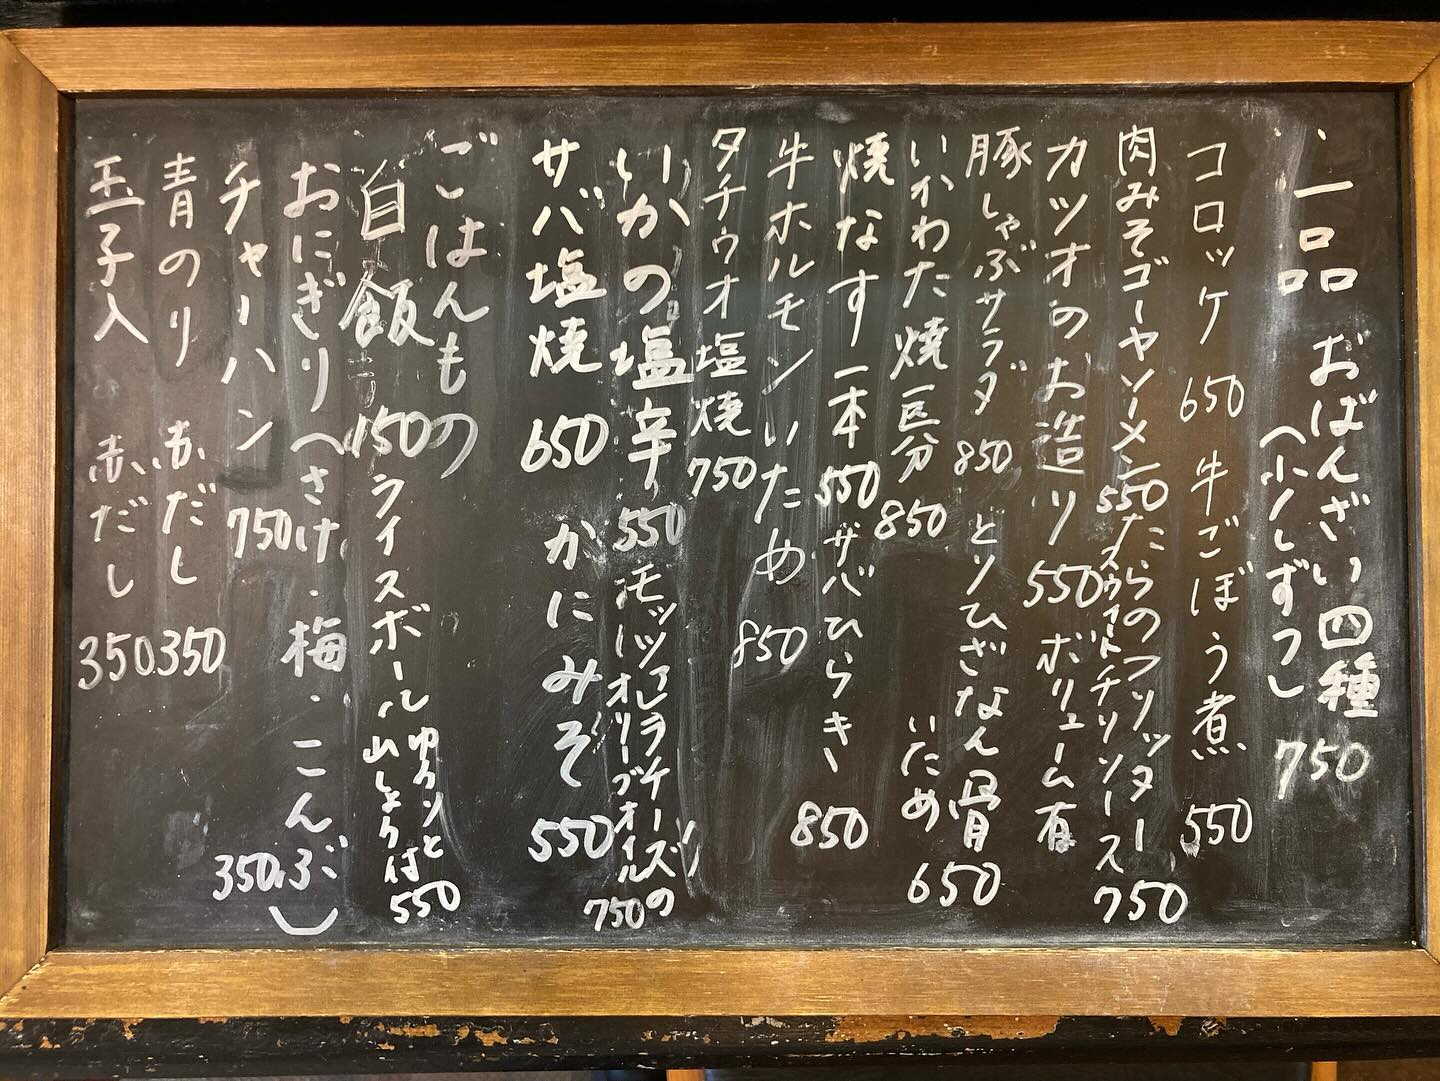 一品 おばんざい 四種
(少しずつ) 750
コロッケ 650 牛ごぼう煮 550
肉みそゴーヤソーメン 550 たらのフリッター
スウィートチリソース 750
カツオのお造り 550 ボリューム有
豚しゃぶサラダ 850 とりひざなん骨
いため 650
いかわた焼 850
焼なす 一本 550 サバひらき 850
牛ホルモンいため 850
タチウオ塩焼 750
いかの塩辛 550 モッツァレラチーズの
オリーブオイル 750
サバ塩焼 650 かにみそ 550
ごはんもの
白飯 150 ライスボール ゆかりと
山しょう付 550
おにぎり(さけ・梅・こんぶ) 350
チャーハン 750
青のり 赤だし 350
玉子入 赤だし 350